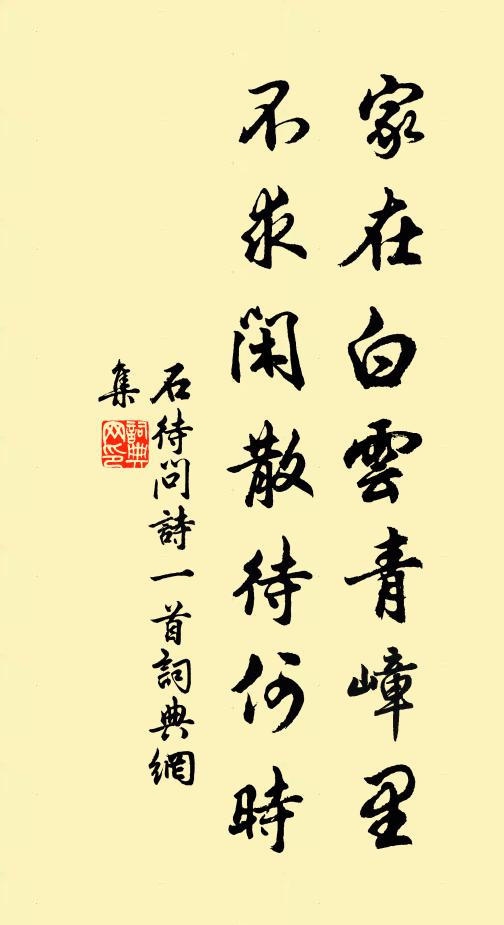 家在白雲青嶂里
不求閑散待何時
石待問詩一首詞典網
集
詞典
网印